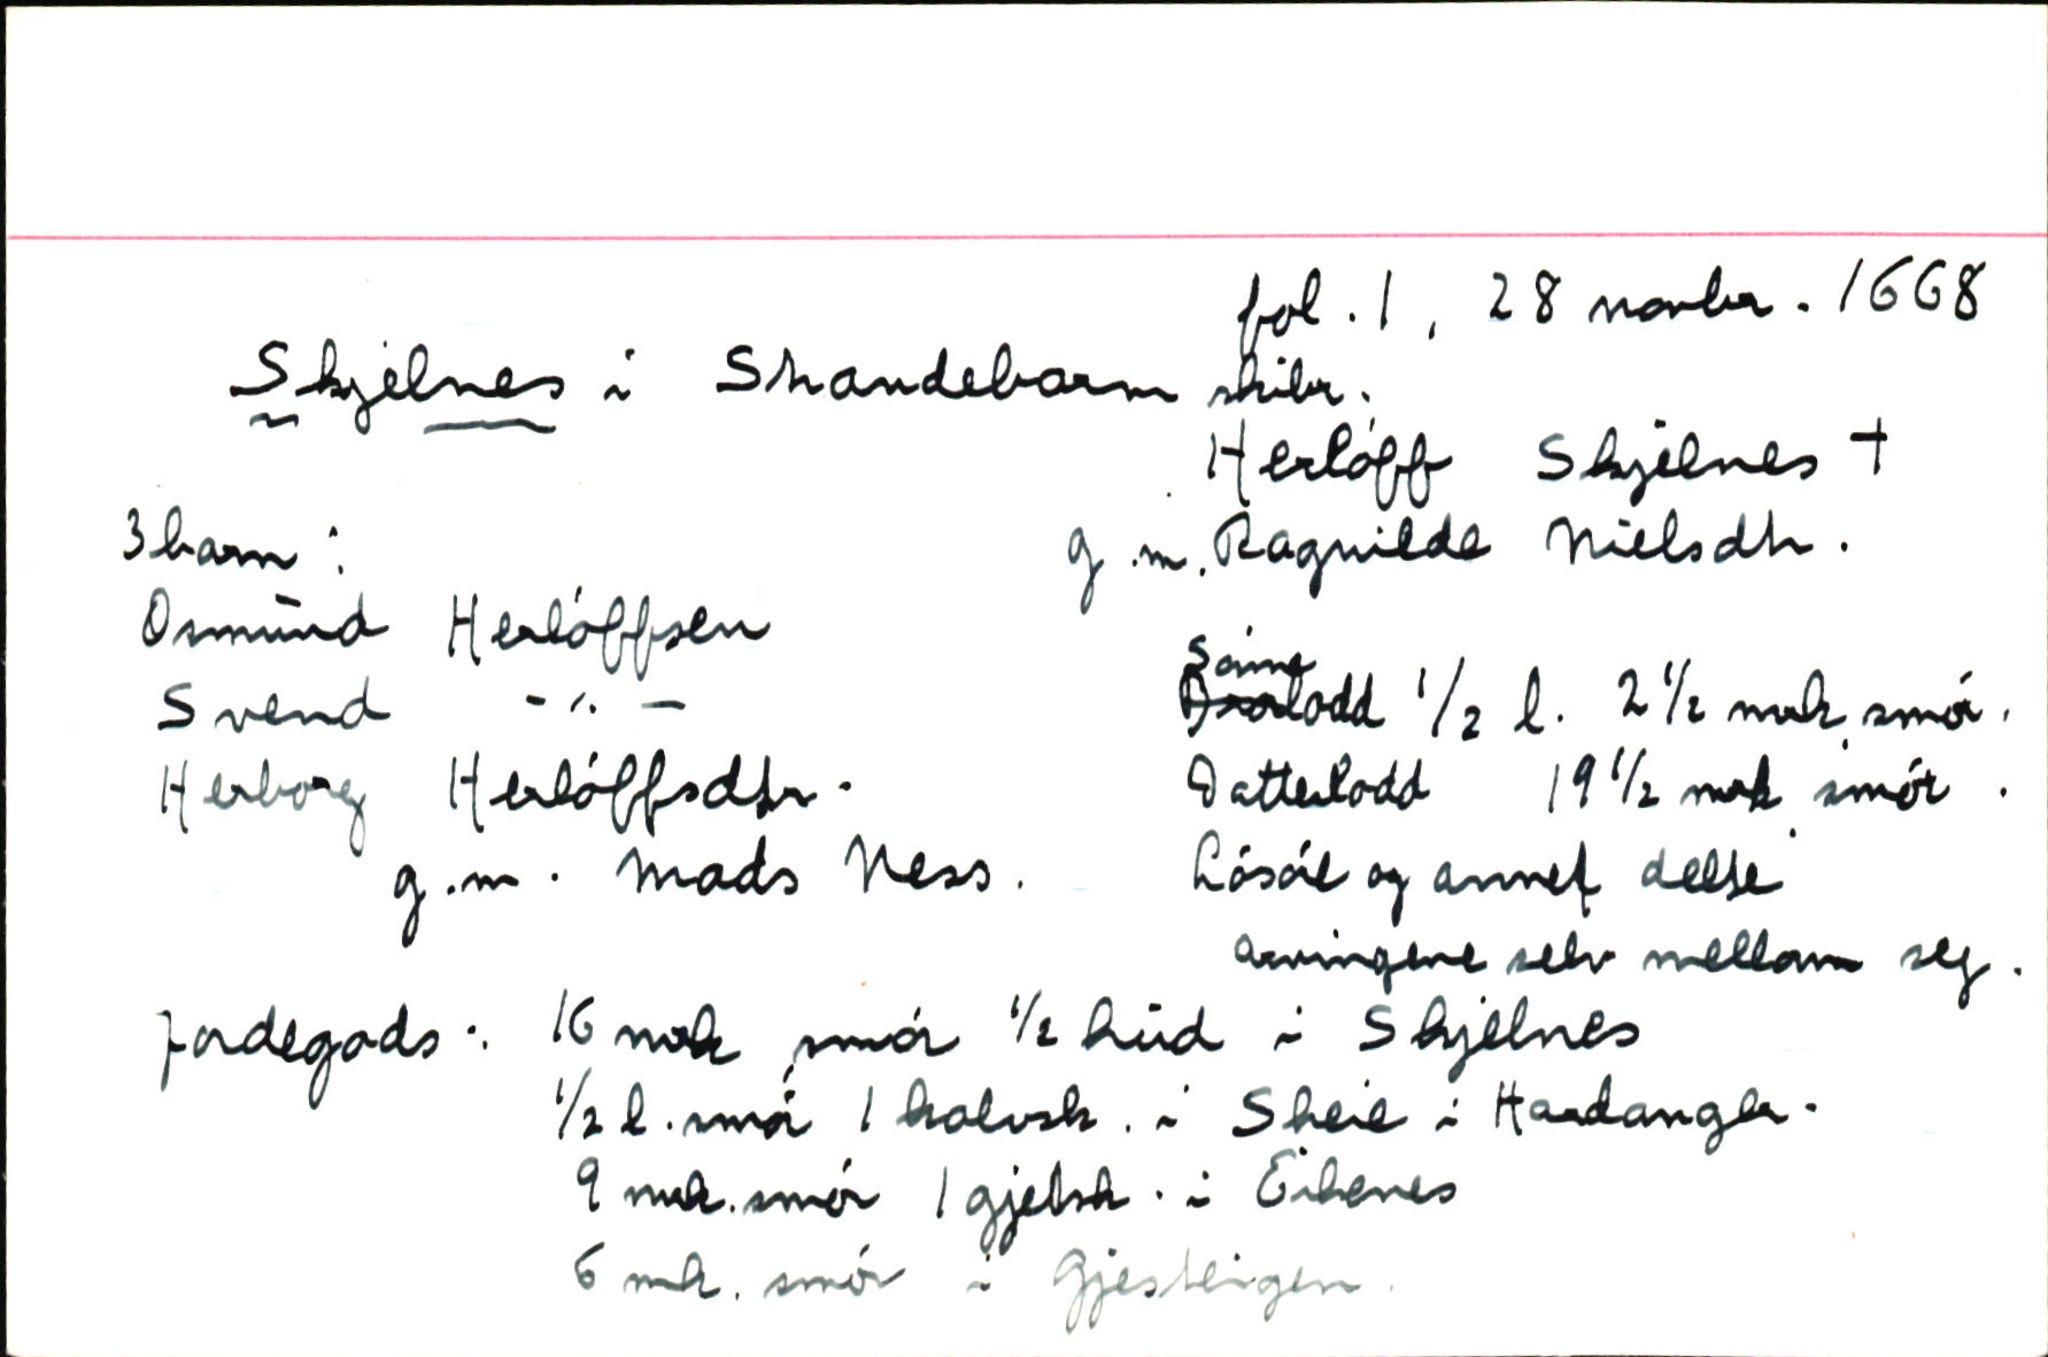 fol. 1, 28 novbr. 1668
Skjelnes i Strandebarm skibr.
Herlóff Skjelnes †
g.m. Ragnilde Nielsdtr.
3 barn:
Osmūnd Herlóffsen
Svend -〃-
Herborg Herlóffsdtr.
g.m. Mads Ness.
Sónne
lodd 1/2 l. 2 1/2 mrk smór.
Datterlodd 19 1/2 mrk smór.
Lósóre og annet delte
arvingene selv mellom seg.
Jordegods: 16 mrk smór 1/2 hūd i Skjelnes
1/2 l. smór 1 kalvsk. i Skeie i Hardanger.
9 mrk. smór 1 gjetsk. i Eikenes
6 mk. smór i Gjesteigen.